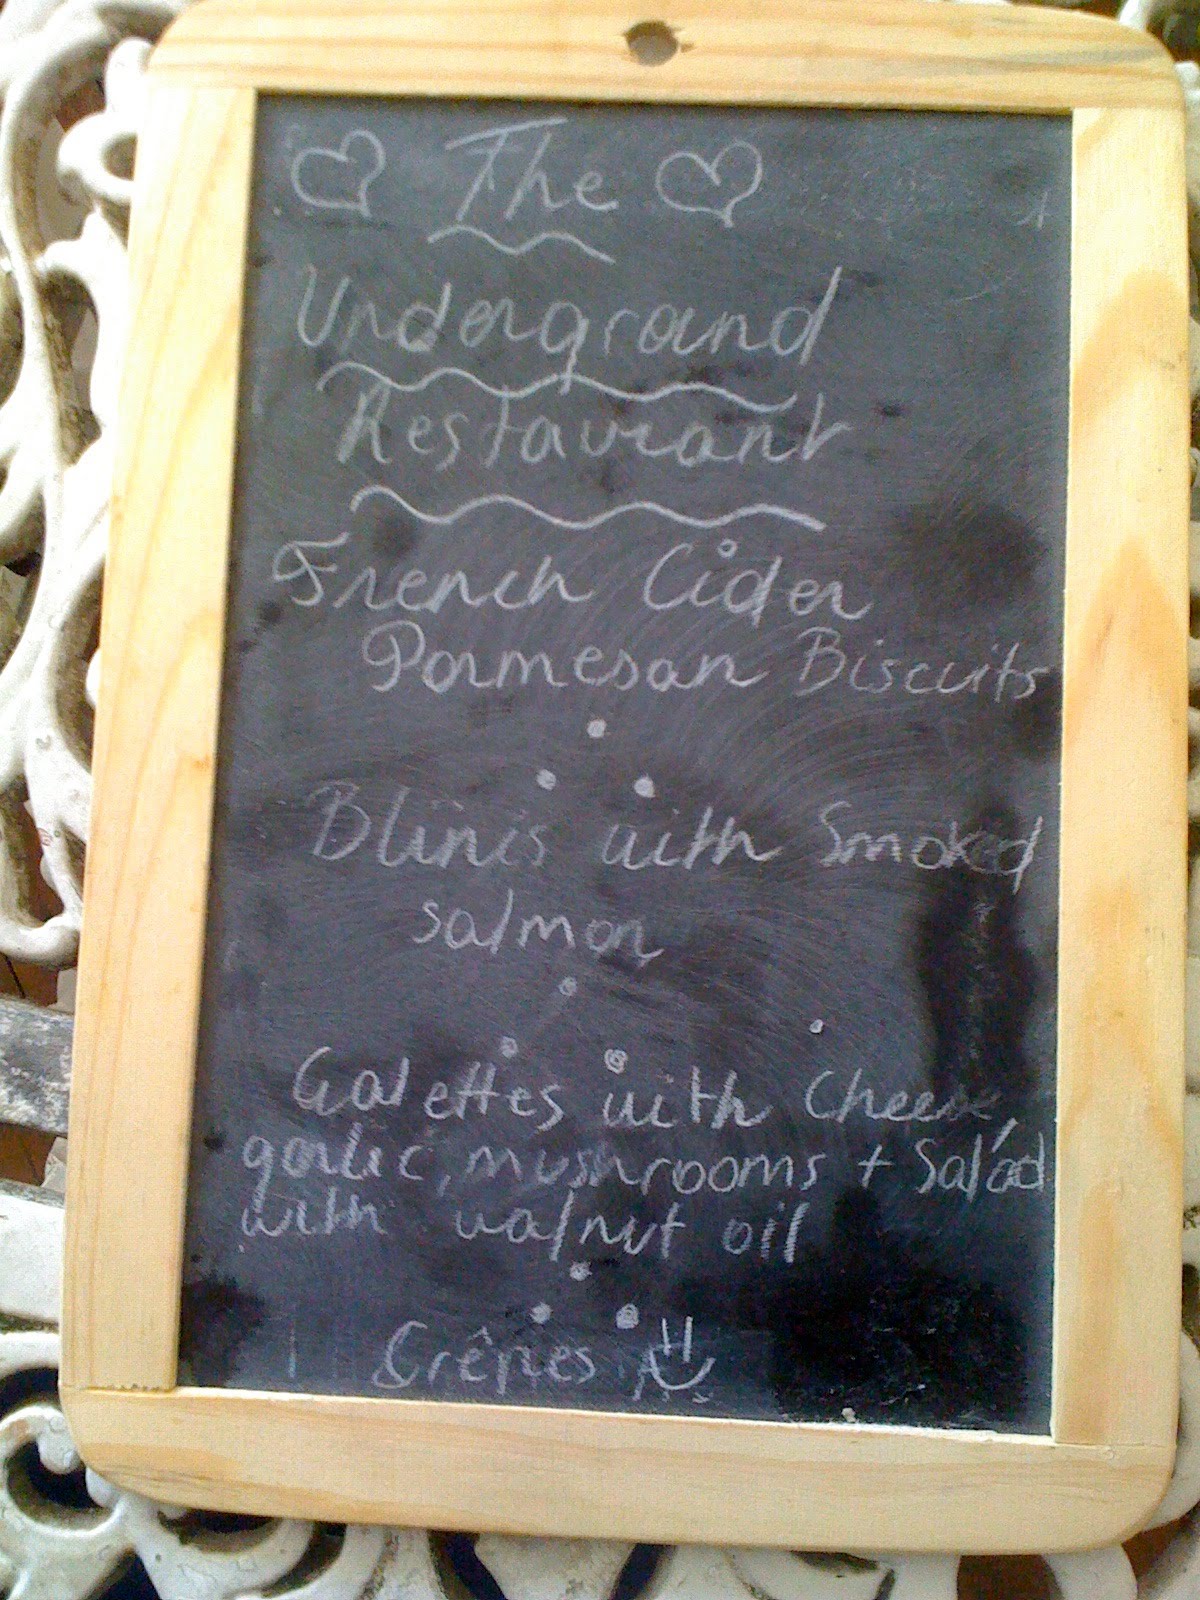 The
Underground
Restaurant
French Cider
Parmesan Biscuits
Blinis with Smoked
salmon
Galettes with Cheese,
garlic, mushrooms + Salad
with walnut oil
Crêpes